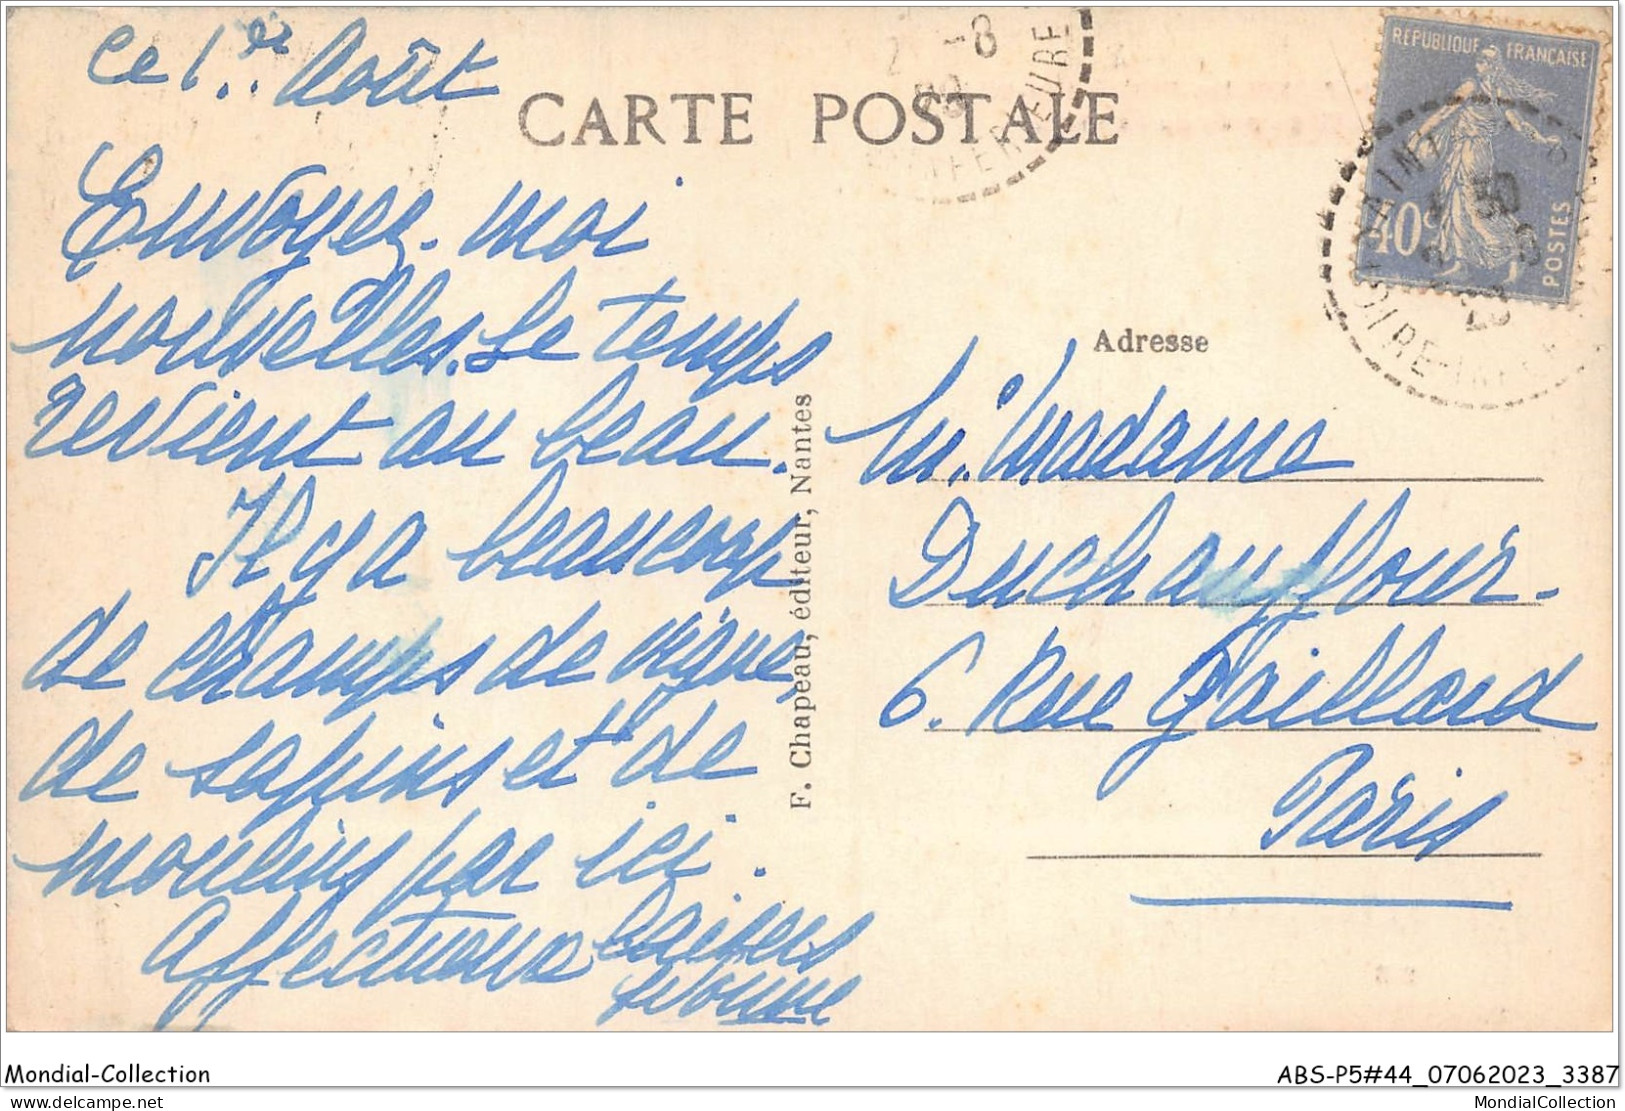 Ce 1er Août
CARTE POSTALE
2 -8
INFERIEURE
REPUBLIQUE FRANÇAISE
40c
POSTES
LOIRE-INFRE
Envoyez-moi
nouvelles. Le temps
revient au beau.
Il y a beaucoup
de champs de vigne,
de sapins et de
moulins par ici.
Affectueux baisers
Yvonne
F. Chapeau, éditeur, Nantes
Adresse
M. Madame
Duchauffour-
6. Rue Gaillard
Paris
Mondial-Collection
ABS-P5#44_07062023_3387
delcampe.net
MondialCollection